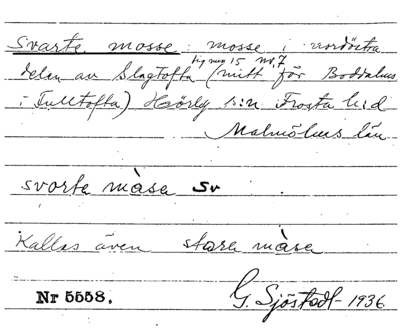 Svarte mosse : mosse i nordöstra
tig nr 15 nr. 7
delen av Slagtofta (mitt för Boddahus
i Fulltofta) Hörby s:n Frosta h:d
Malmöhus län
svorte màse Sv
Kallas även stare màse
Nr 5558. G. Sjöstedt 1936